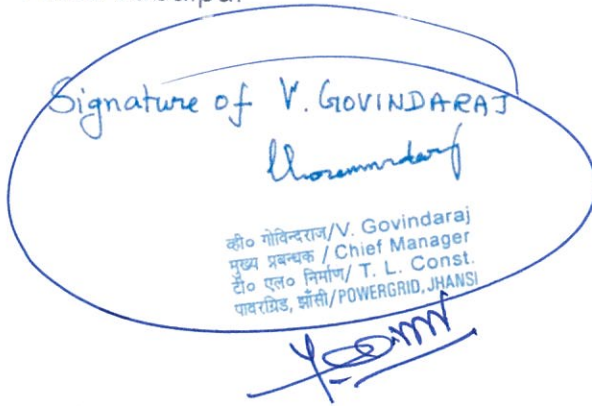 Signature of V. GOVINDARAJ
व्ही० गोविन्दराज/V. Govindaraj
मुख्य प्रबन्धक / Chief Manager
टी० एल० निर्माण/ T. L. Const.
पावरग्रिड, झाँसी/POWERGRID, JHANSI